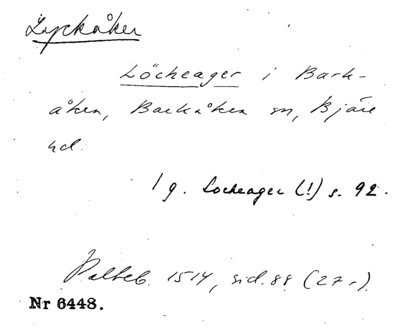 Lyckåker
Löcheager i Bark-
åken, Barkåkra sn, Bjäre
hd.
1 g. Locheager (!) s. 92.
Palteb. 1514, sid. 88 (27 r).
Nr 6448.